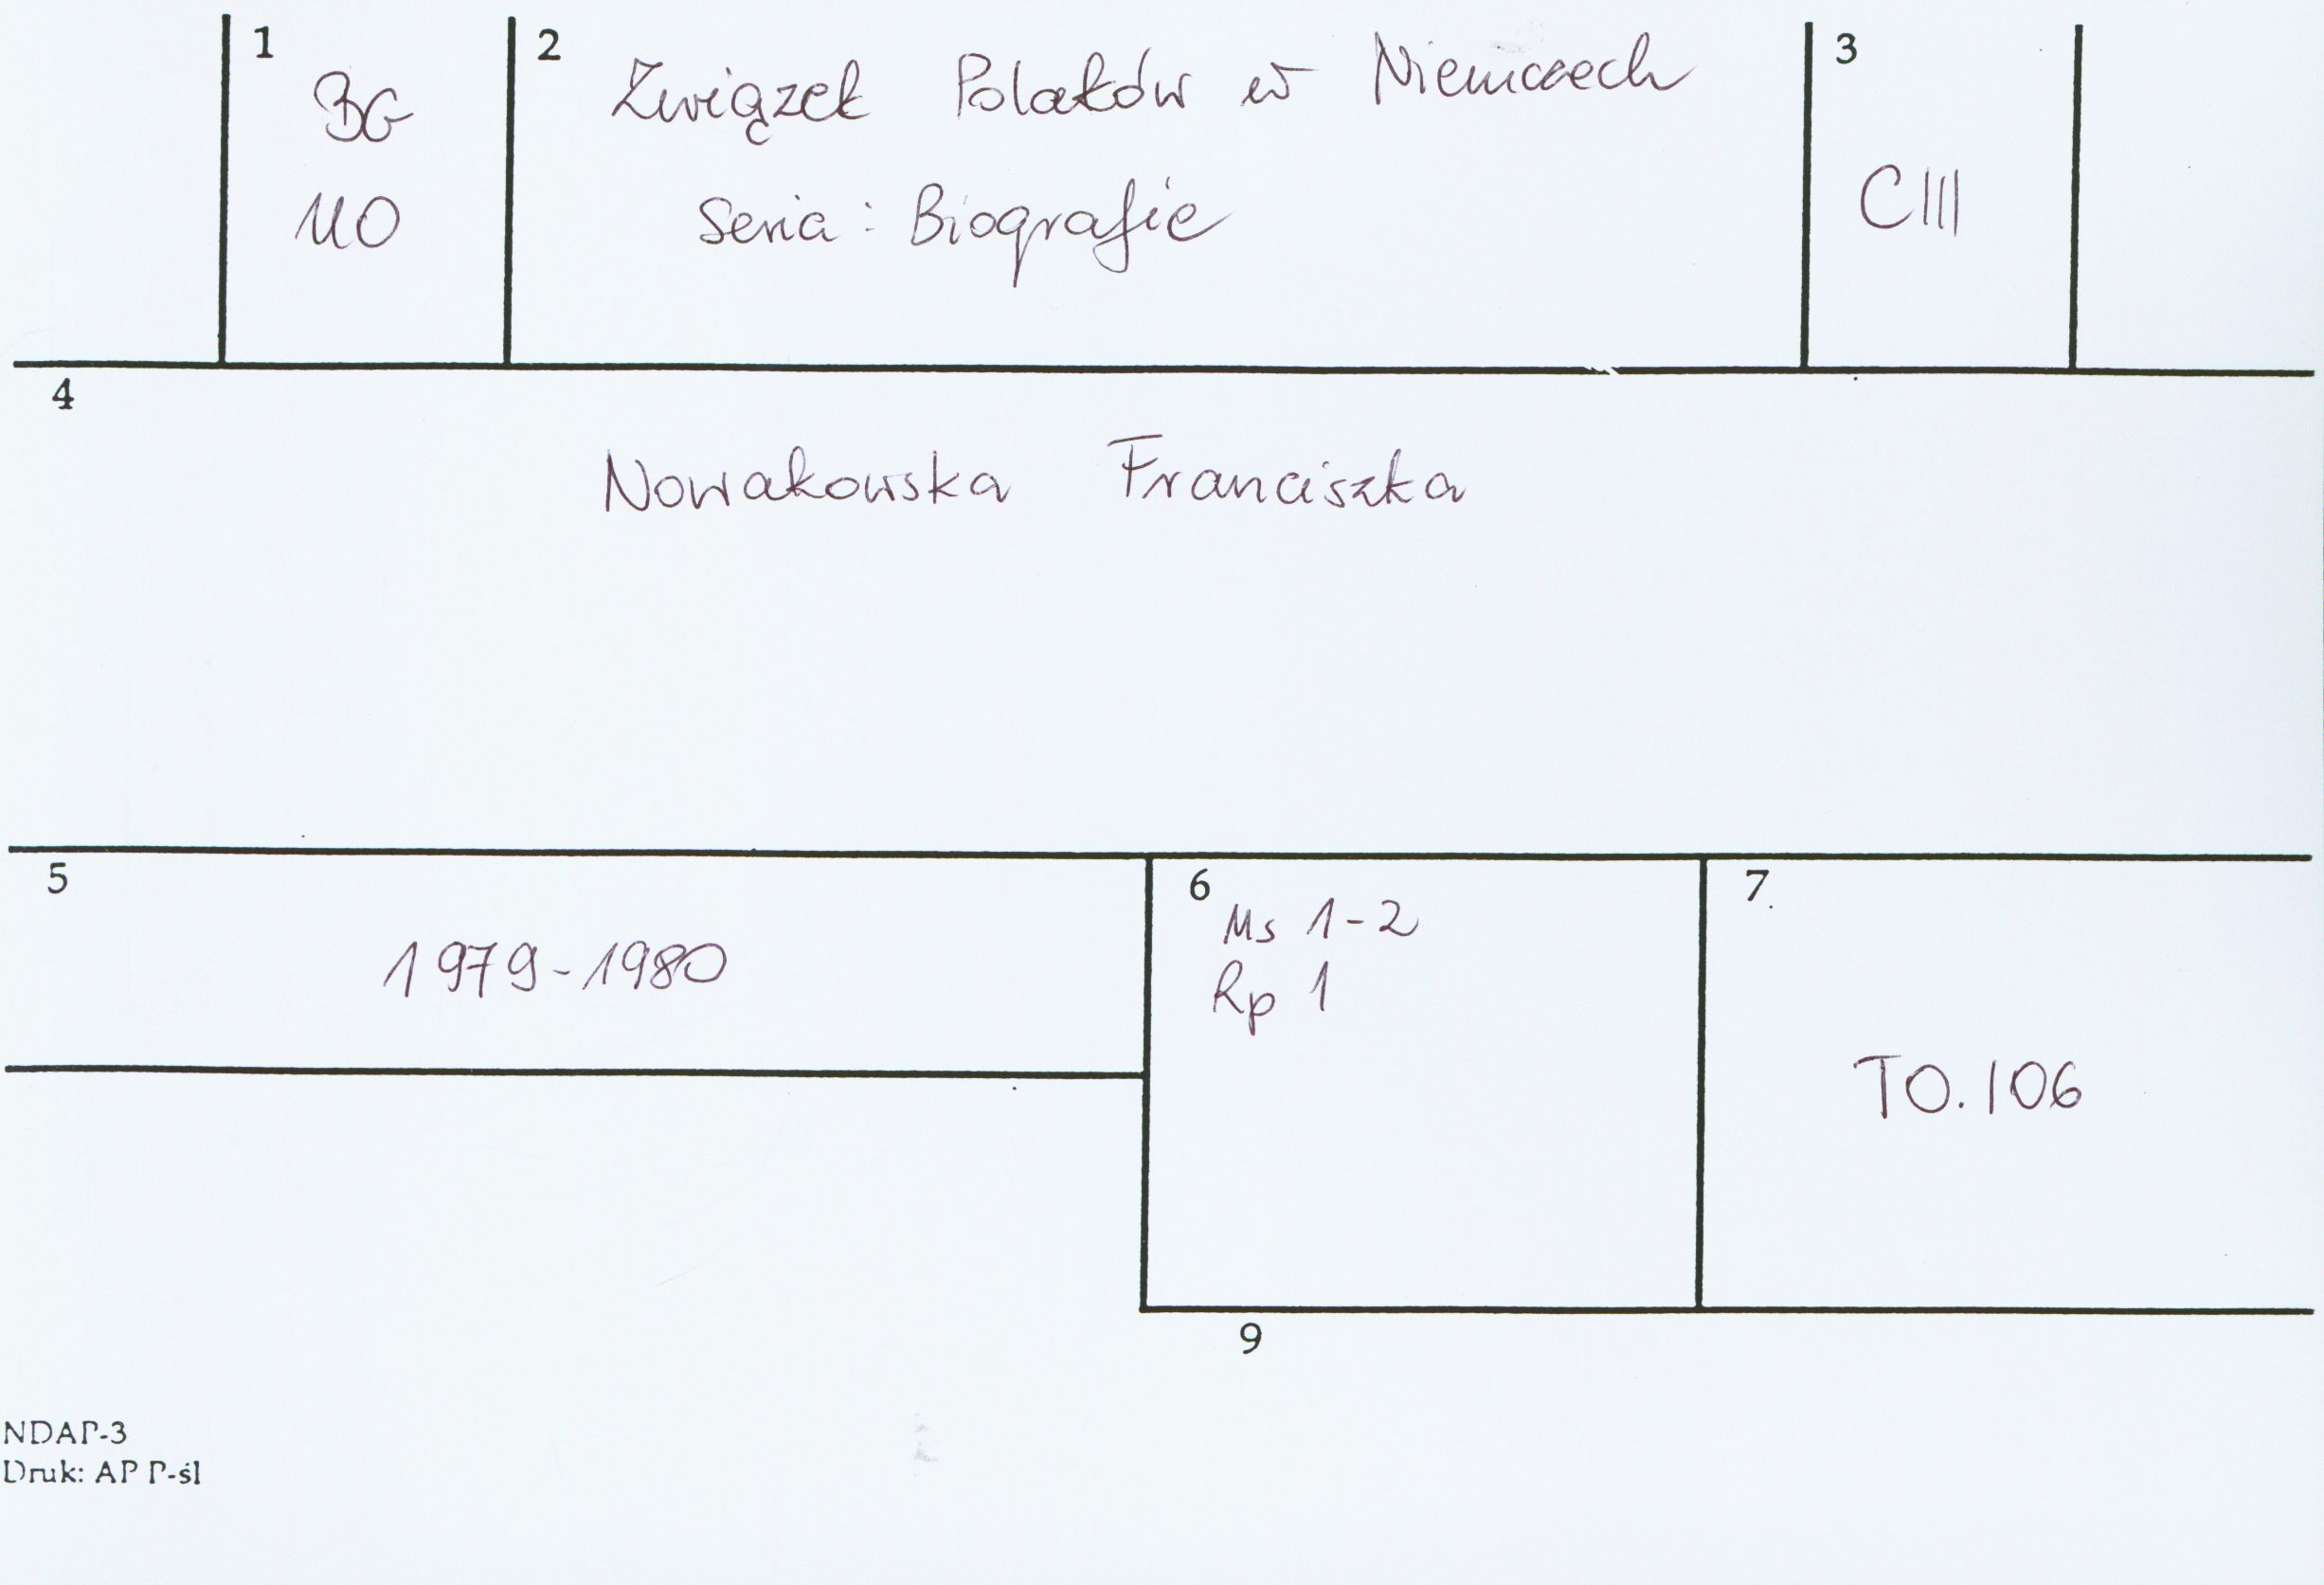 1
BG
110
2
Związek Polaków w Niemczech
Seria: Biografie
3
CIII
4
Nowakowska Franciszka
5
1979-1980
6
Ms 1-2
Rp 1
7
TO.106
9
NDAP-3
Druk: AP P-śl